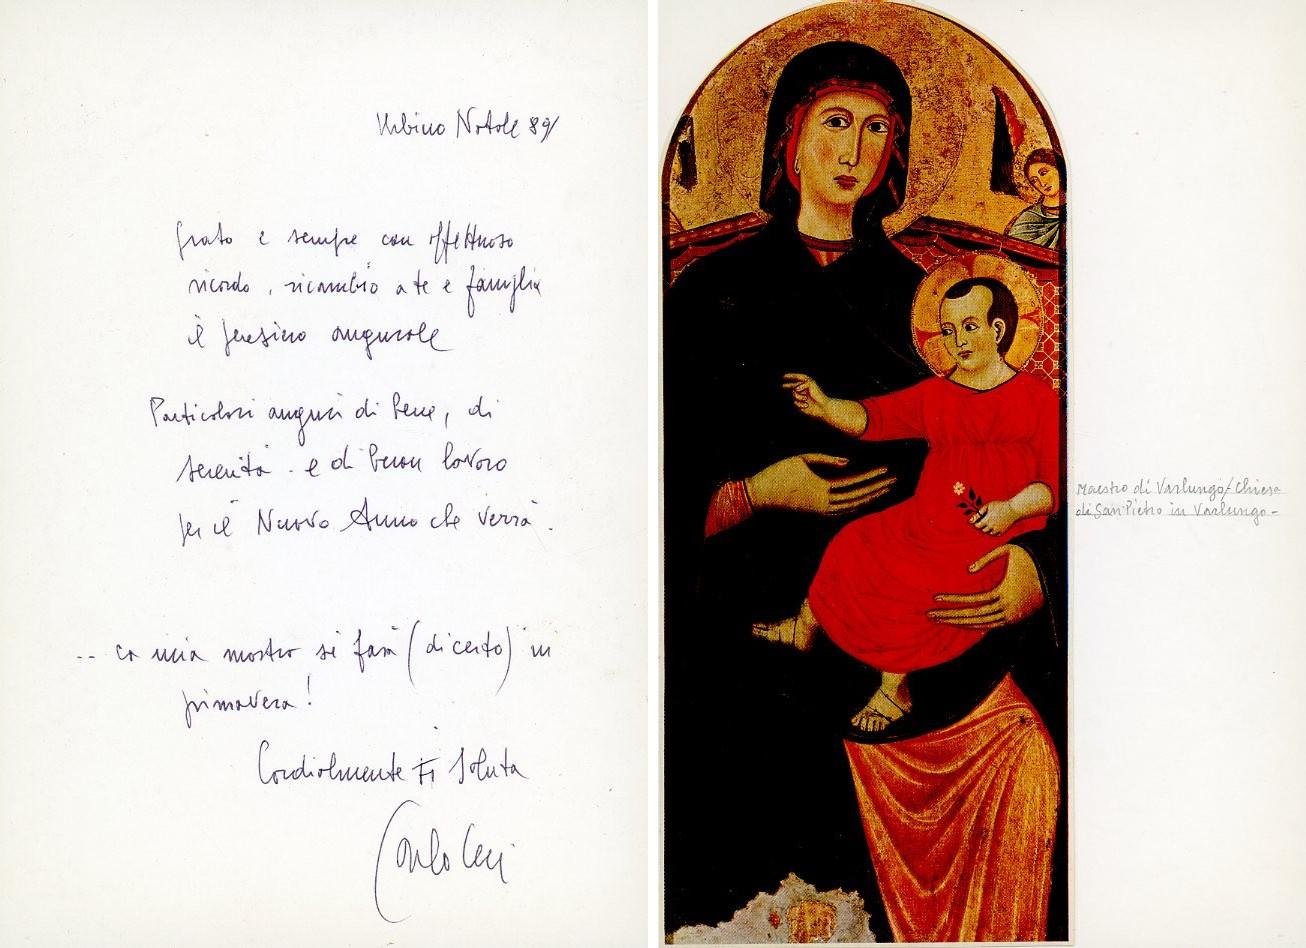 Urbino Natale 89/
Grato e sempre con affettuoso
ricordo, ricambio a te e famiglia
il pensiero augurale
Particolari auguri di bene, di
serenità - e di buon lavoro
per il Nuovo Anno che verrà.
.. la mia mostra si farà (di certo) in
primavera!
Cordialmente Ti saluta
Carlo Ceci
Maestro di Varlungo / Chiesa
di San Pietro in Varlungo -